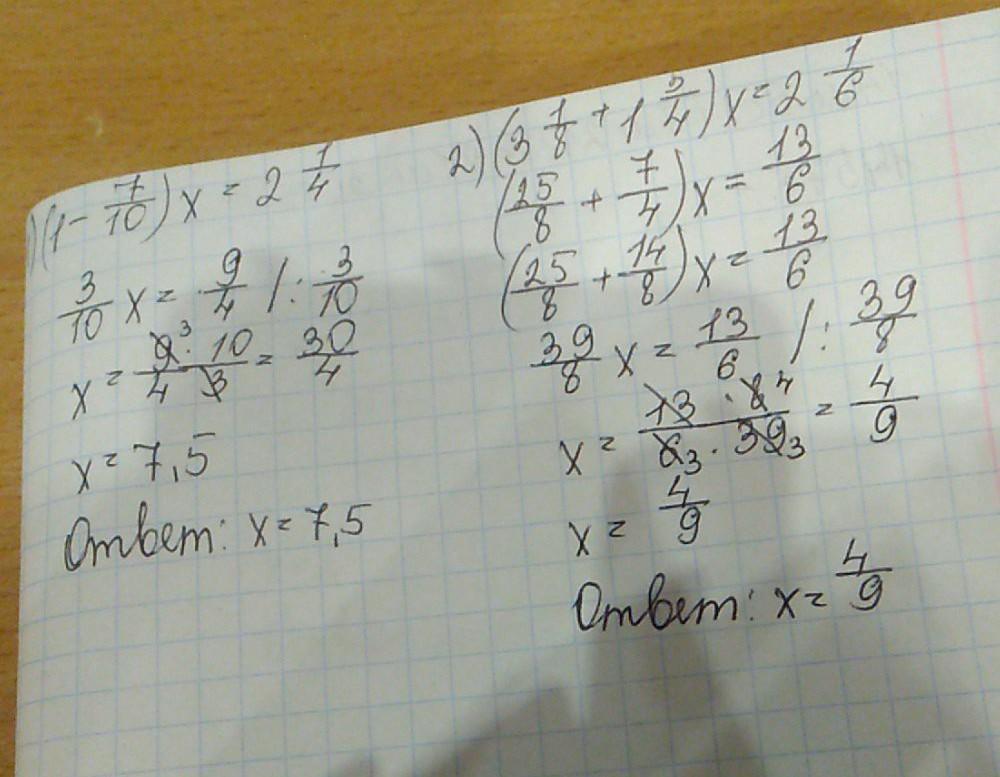 1) (1 - 7/10) x = 2 1/4
3/10 x = 9/4 | : 3/10
x = 9³ · 10 / 4 · 3 = 30/4
x = 7,5
Ответ: x = 7,5
2) (3 1/8 + 1 3/4) x = 2 1/6
(25/8 + 7/4) x = 13/6
(25/8 + 14/8) x = 13/6
39/8 x = 13/6 | : 39/8
x = 13 · 8 4 / 6 3 · 39 3 = 4/9
x = 4/9
Ответ: x = 4/9